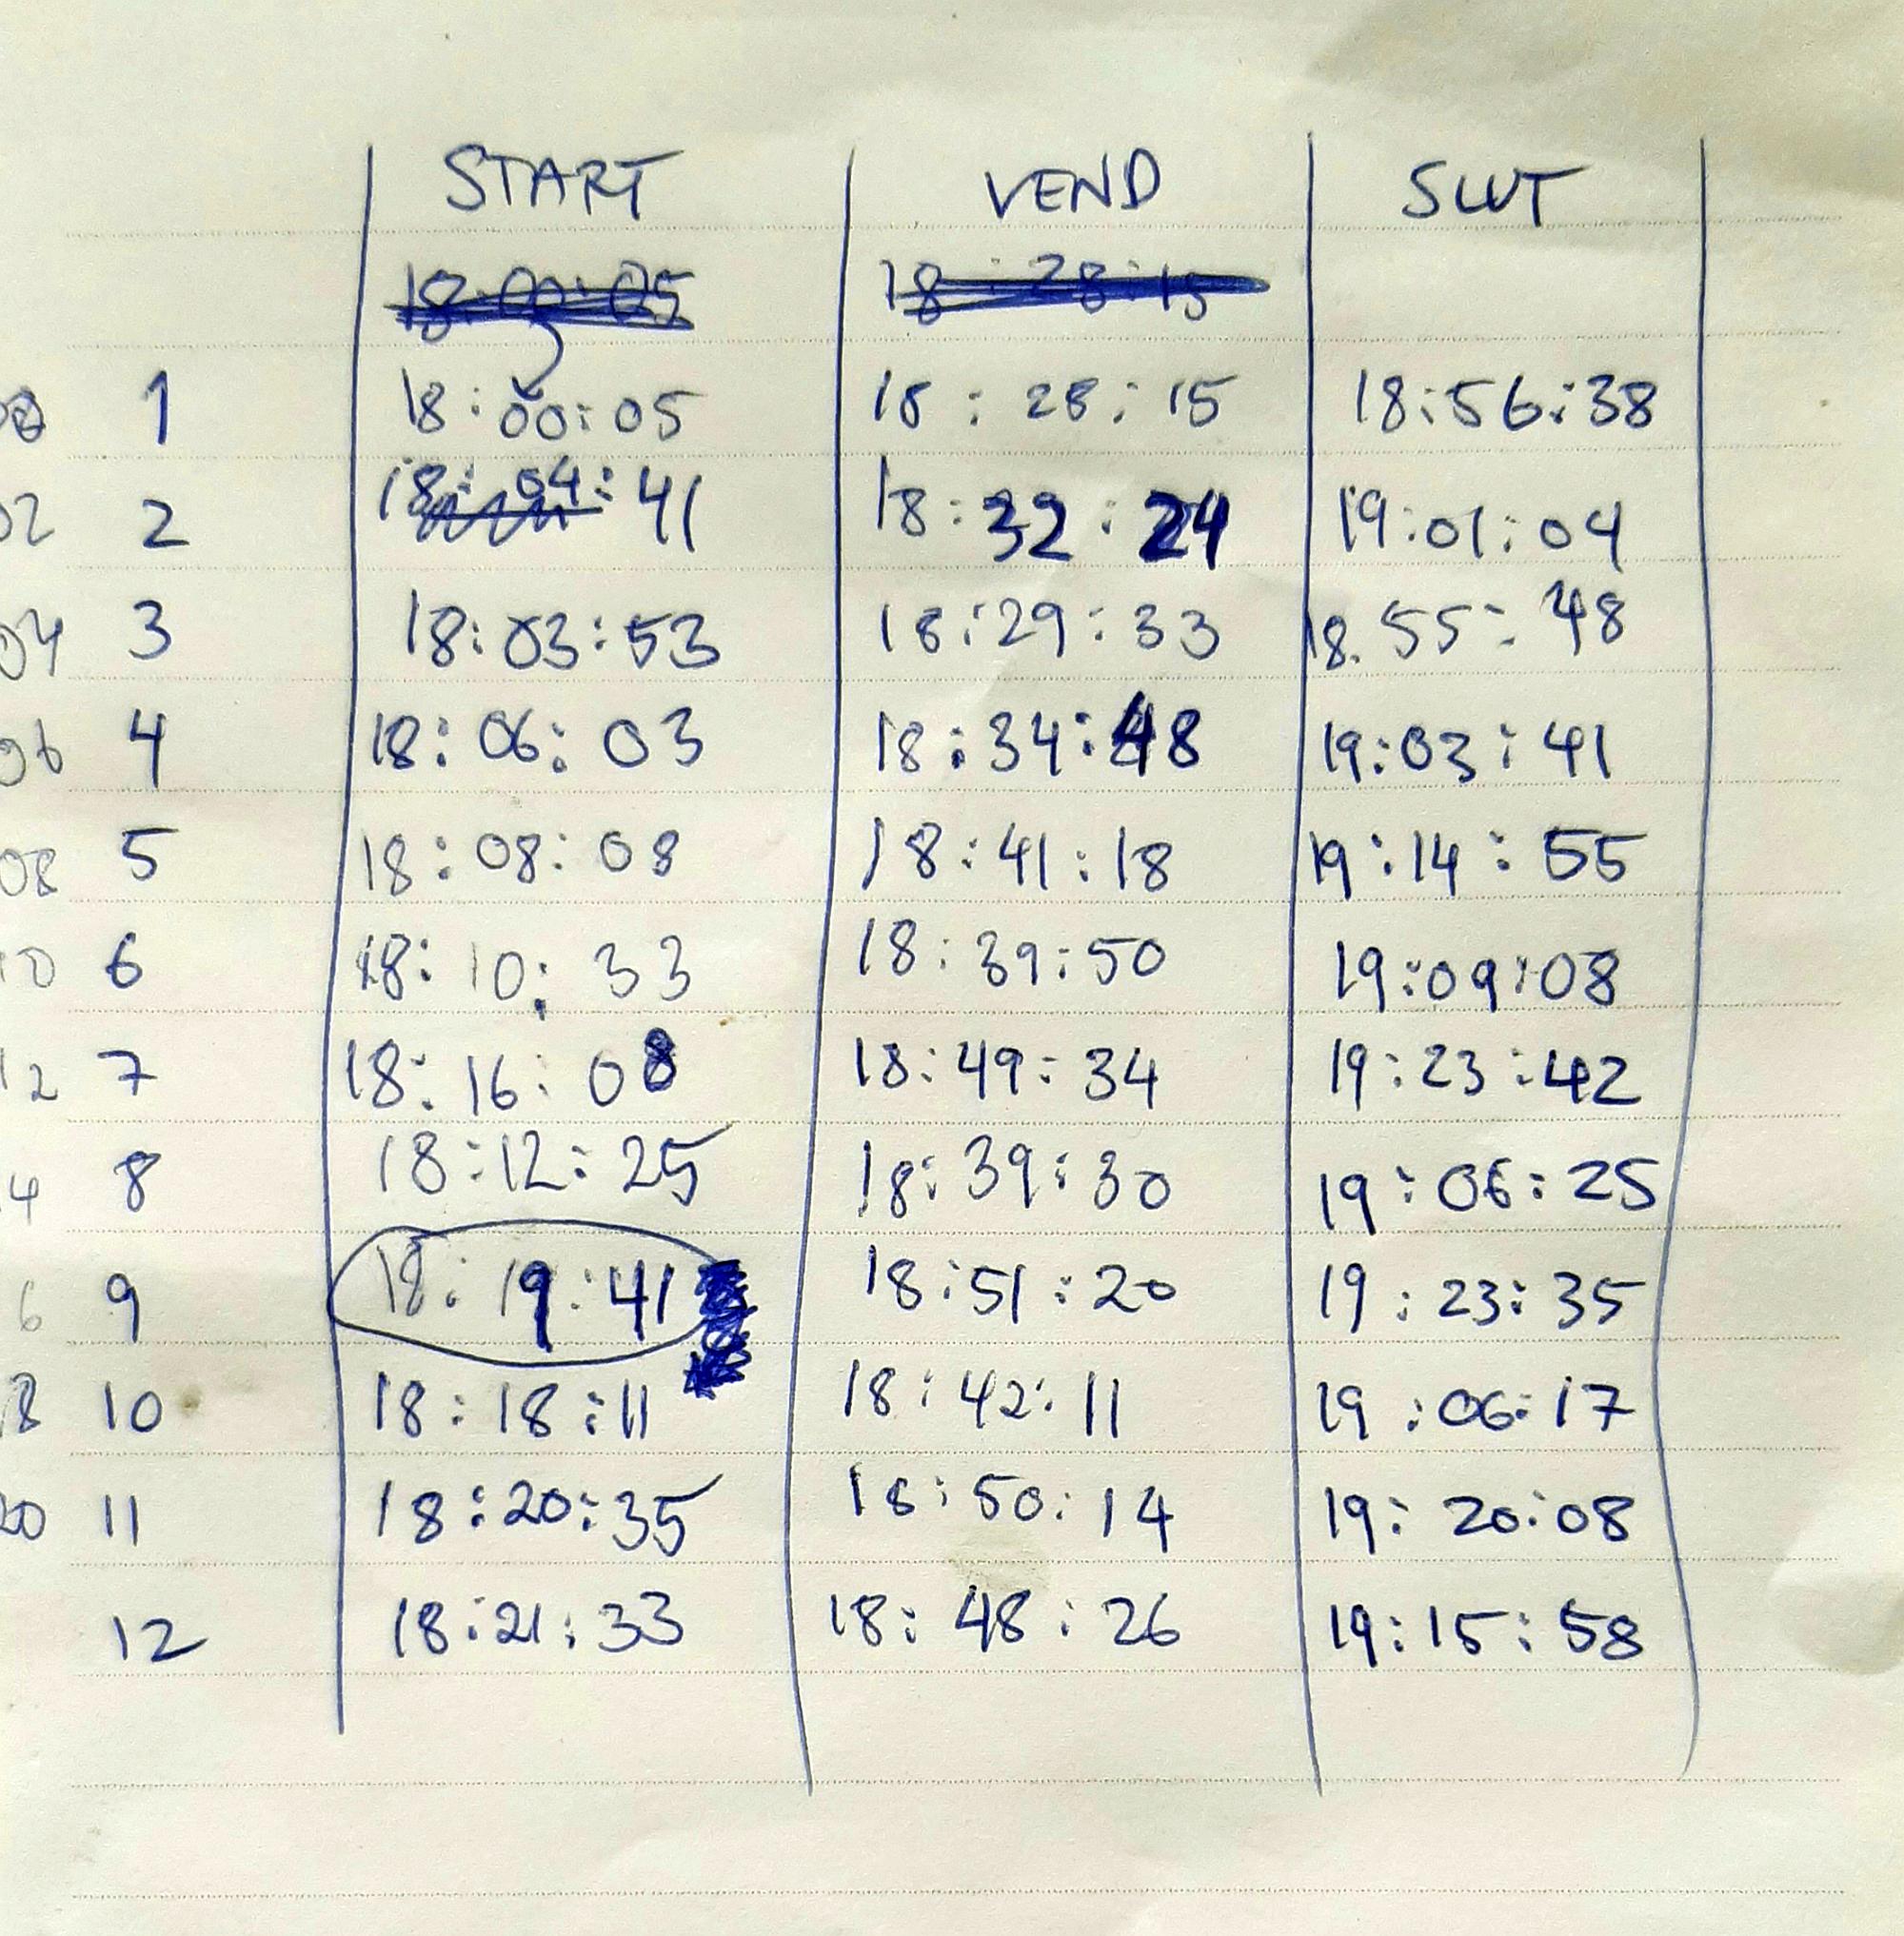 START VEND SLUT
18:00:05 18:28:15
1 18:00:05 18:28:15 18:56:38
02 2 18:04:41 18:32:24 19:01:04
04 3 18:03:53 18:29:33 18.55:48
06 4 18:06:03 18:34:48 19:03:41
08 5 18:08:08 18:41:18 19:14:55
10 6 18:10:33 18:39:50 19:09:08
12 7 18:16:08 18:49:34 19:23:42
4 8 18:12:25 18:39:30 19:06:25
6 9 18:19:41 18:51:20 19:23:35
8 10 18:18:11 18:42:11 19:06:17
20 11 18:20:35 18:50:14 19:20:08
12 18:21:33 18:48:26 19:15:58